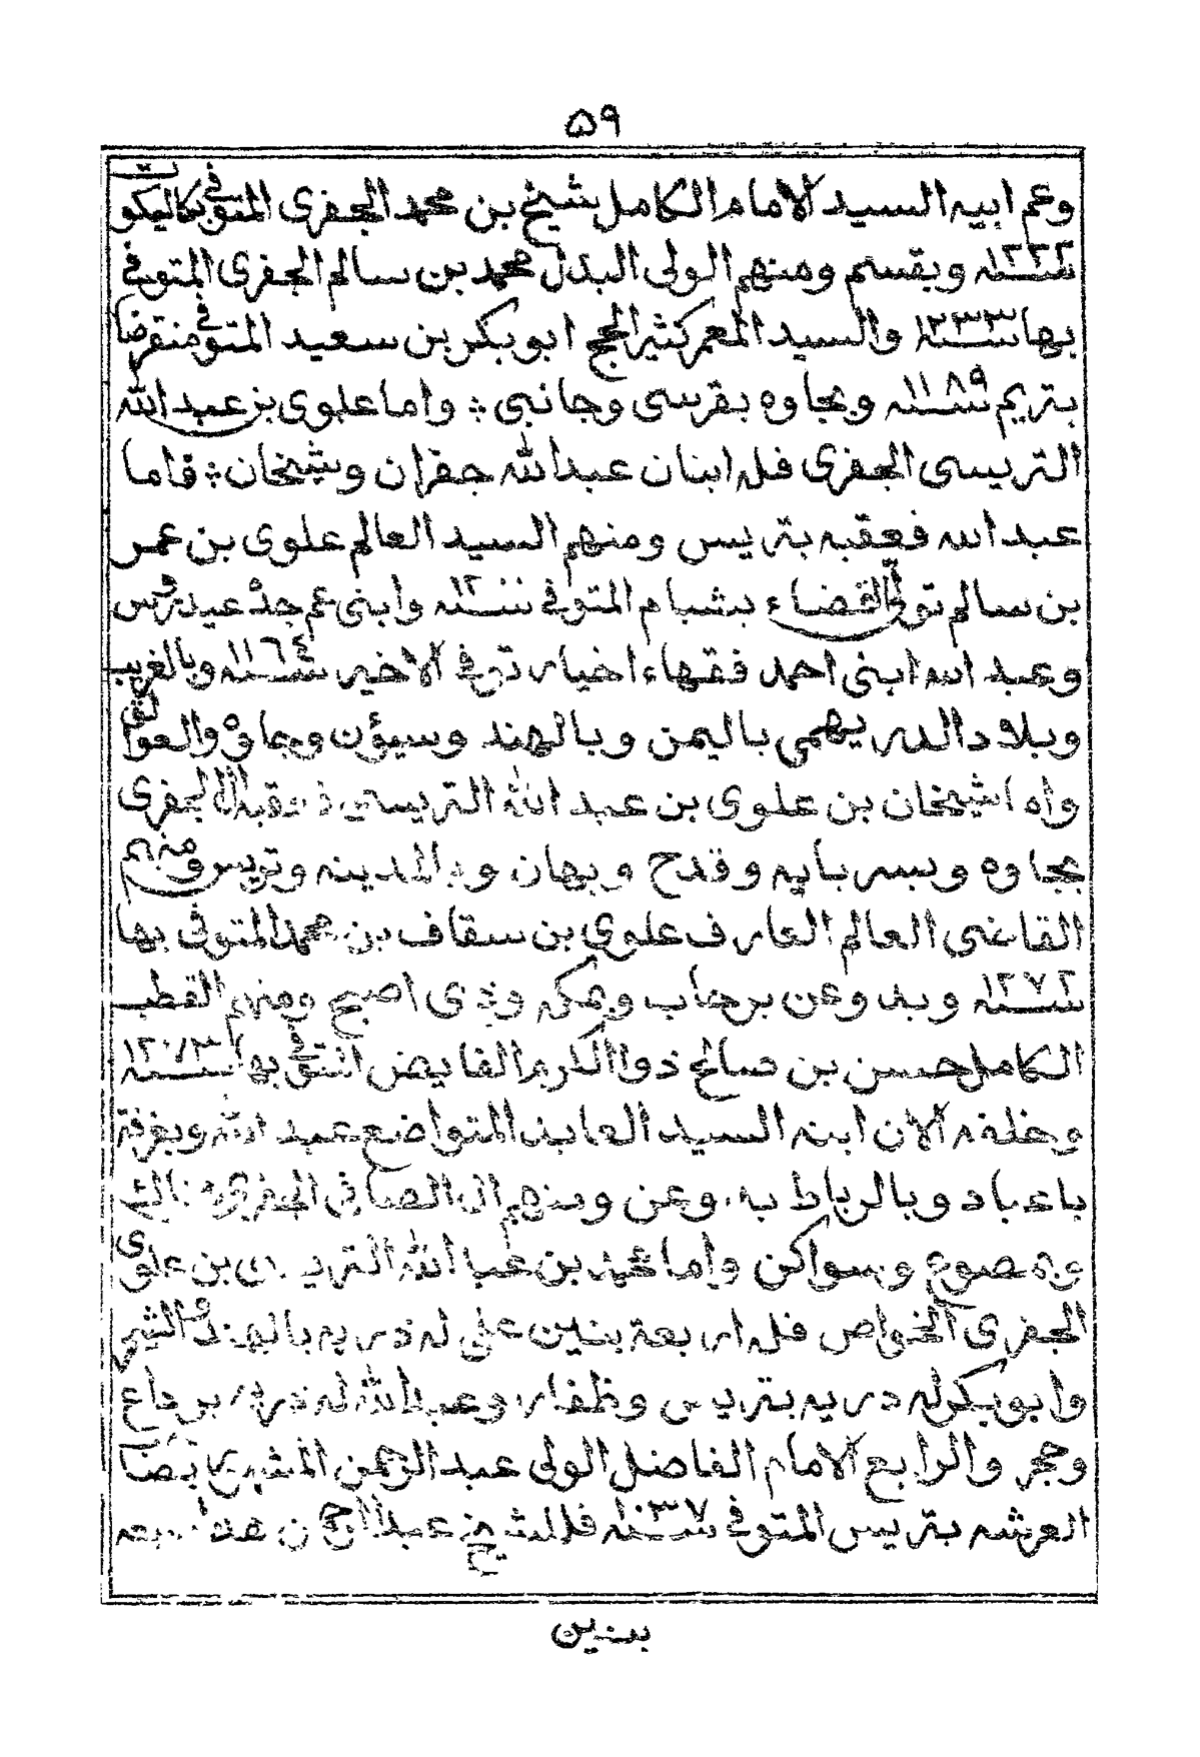 ٥٩
وعم ابيه السيد الامام الكامل شيخ بن محمد الجفرى المتوفى بكاليكوت
سنة ١٢٢٢ وبقسم ومنهم الولى البدل محمد بن سالم الجفرى المتوفى
بها سنة ١٢٣٣ والسيد المعمر كثير الحج ابو بكر بن سعيد المتوفى منقرضا
بتريم سنة ١١٨٩ وبجاوه بقرسى وجانبى : واما علوى بن عبد الله
التريسى الجفرى فله ابنان عبد الله جفران وشيخان : فاما
عبد الله فعقبه بتريس ومنهم السيد العالم علوى بن عمر
بن سالم تولى القضاء بشبام المتوفى سنة ١٢٠٠ وابنى عم جده عيدروس
وعبد الله ابنى احمد فقهاء اخيار توفى الاخير سنة ١١٦٤ وبالغريب
وبلاد الدريهمى باليمن وبالهند وسيؤن وجاوه والعوالق
واما شيخان بن علوى بن عبد الله التريسى الجفرى
بجاوه وبسربايه وقدح وبهان وبالمدينه وتريس ومنهم
القاضى العالم العارف علوي بن سقاف بن محمد المتوفى بها
سنة ١٢٧٢ وبدوعن برحاب وبمكه وذى اصبح ومنهم القطب
الكامل حسن بن صالح ذو الكرم الفايض المتوفى بها سنة ١٢٧٣
وخلفه الان ابنه السيد العابد المتواضع عبد الله وبغرفة
باعباد وبالرباط بدوعن ومنهم ال الصافى الجفرى
وبمصوع وسواكن واما محمد بن عبد الله التريسى بن علوى
الجفرى الخواص فله اربعة بنين على له ذريه بالهند والشحر
وابوبكر له ذريه بتريس وظفار وعبد الله له ذريه
وحجر والرابع الامام الفاضل الولى عبد الرحمن المشهور
العرشه بتريس المتوفى سنة ١٠٣٧ فللشيخ عبد الرحمن هذا سبعه
بنين